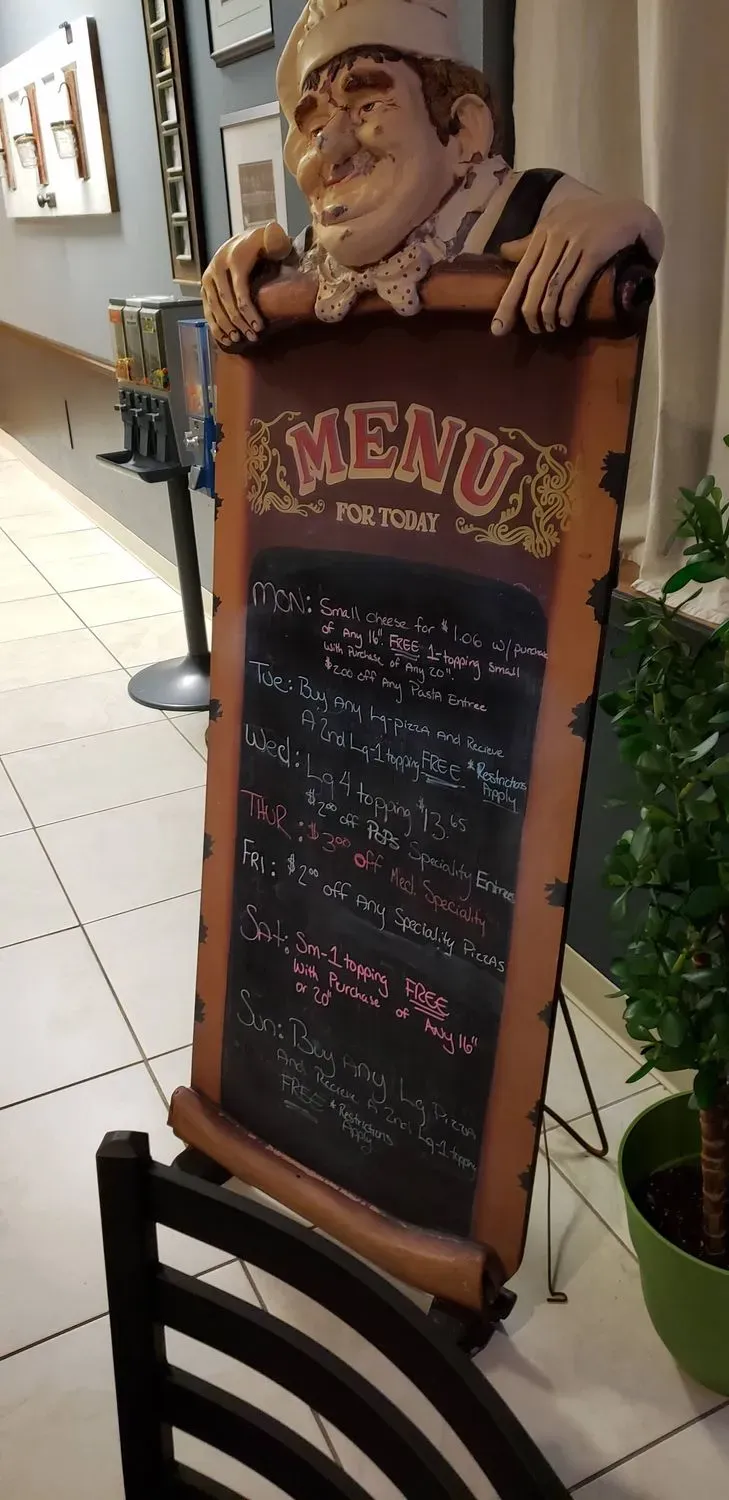 MENU
FOR TODAY
MON: Small cheese for $1.06 w/ purchase
of Any 16". FREE 1-topping small
with Purchase of Any 20".
$2.00 off Any Pasta Entree
Tue: Buy Any Lg-pizza And Recieve
A 2nd Lg-1 topping FREE *Restrictions
Apply
Wed: Lg 4 topping $13.65
$2.00 off POPS Speciality Entrees
THUR: $3.00 off Med. Speciality
FRI: $2.00 off Any Speciality Pizzas
SAt: Sm-1 topping FREE
with Purchase of Any 16"
or 20"
Sun: Buy Any Lg Pizza
And Recieve A 2nd Lg-1 topping
FREE *Restrictions
Apply